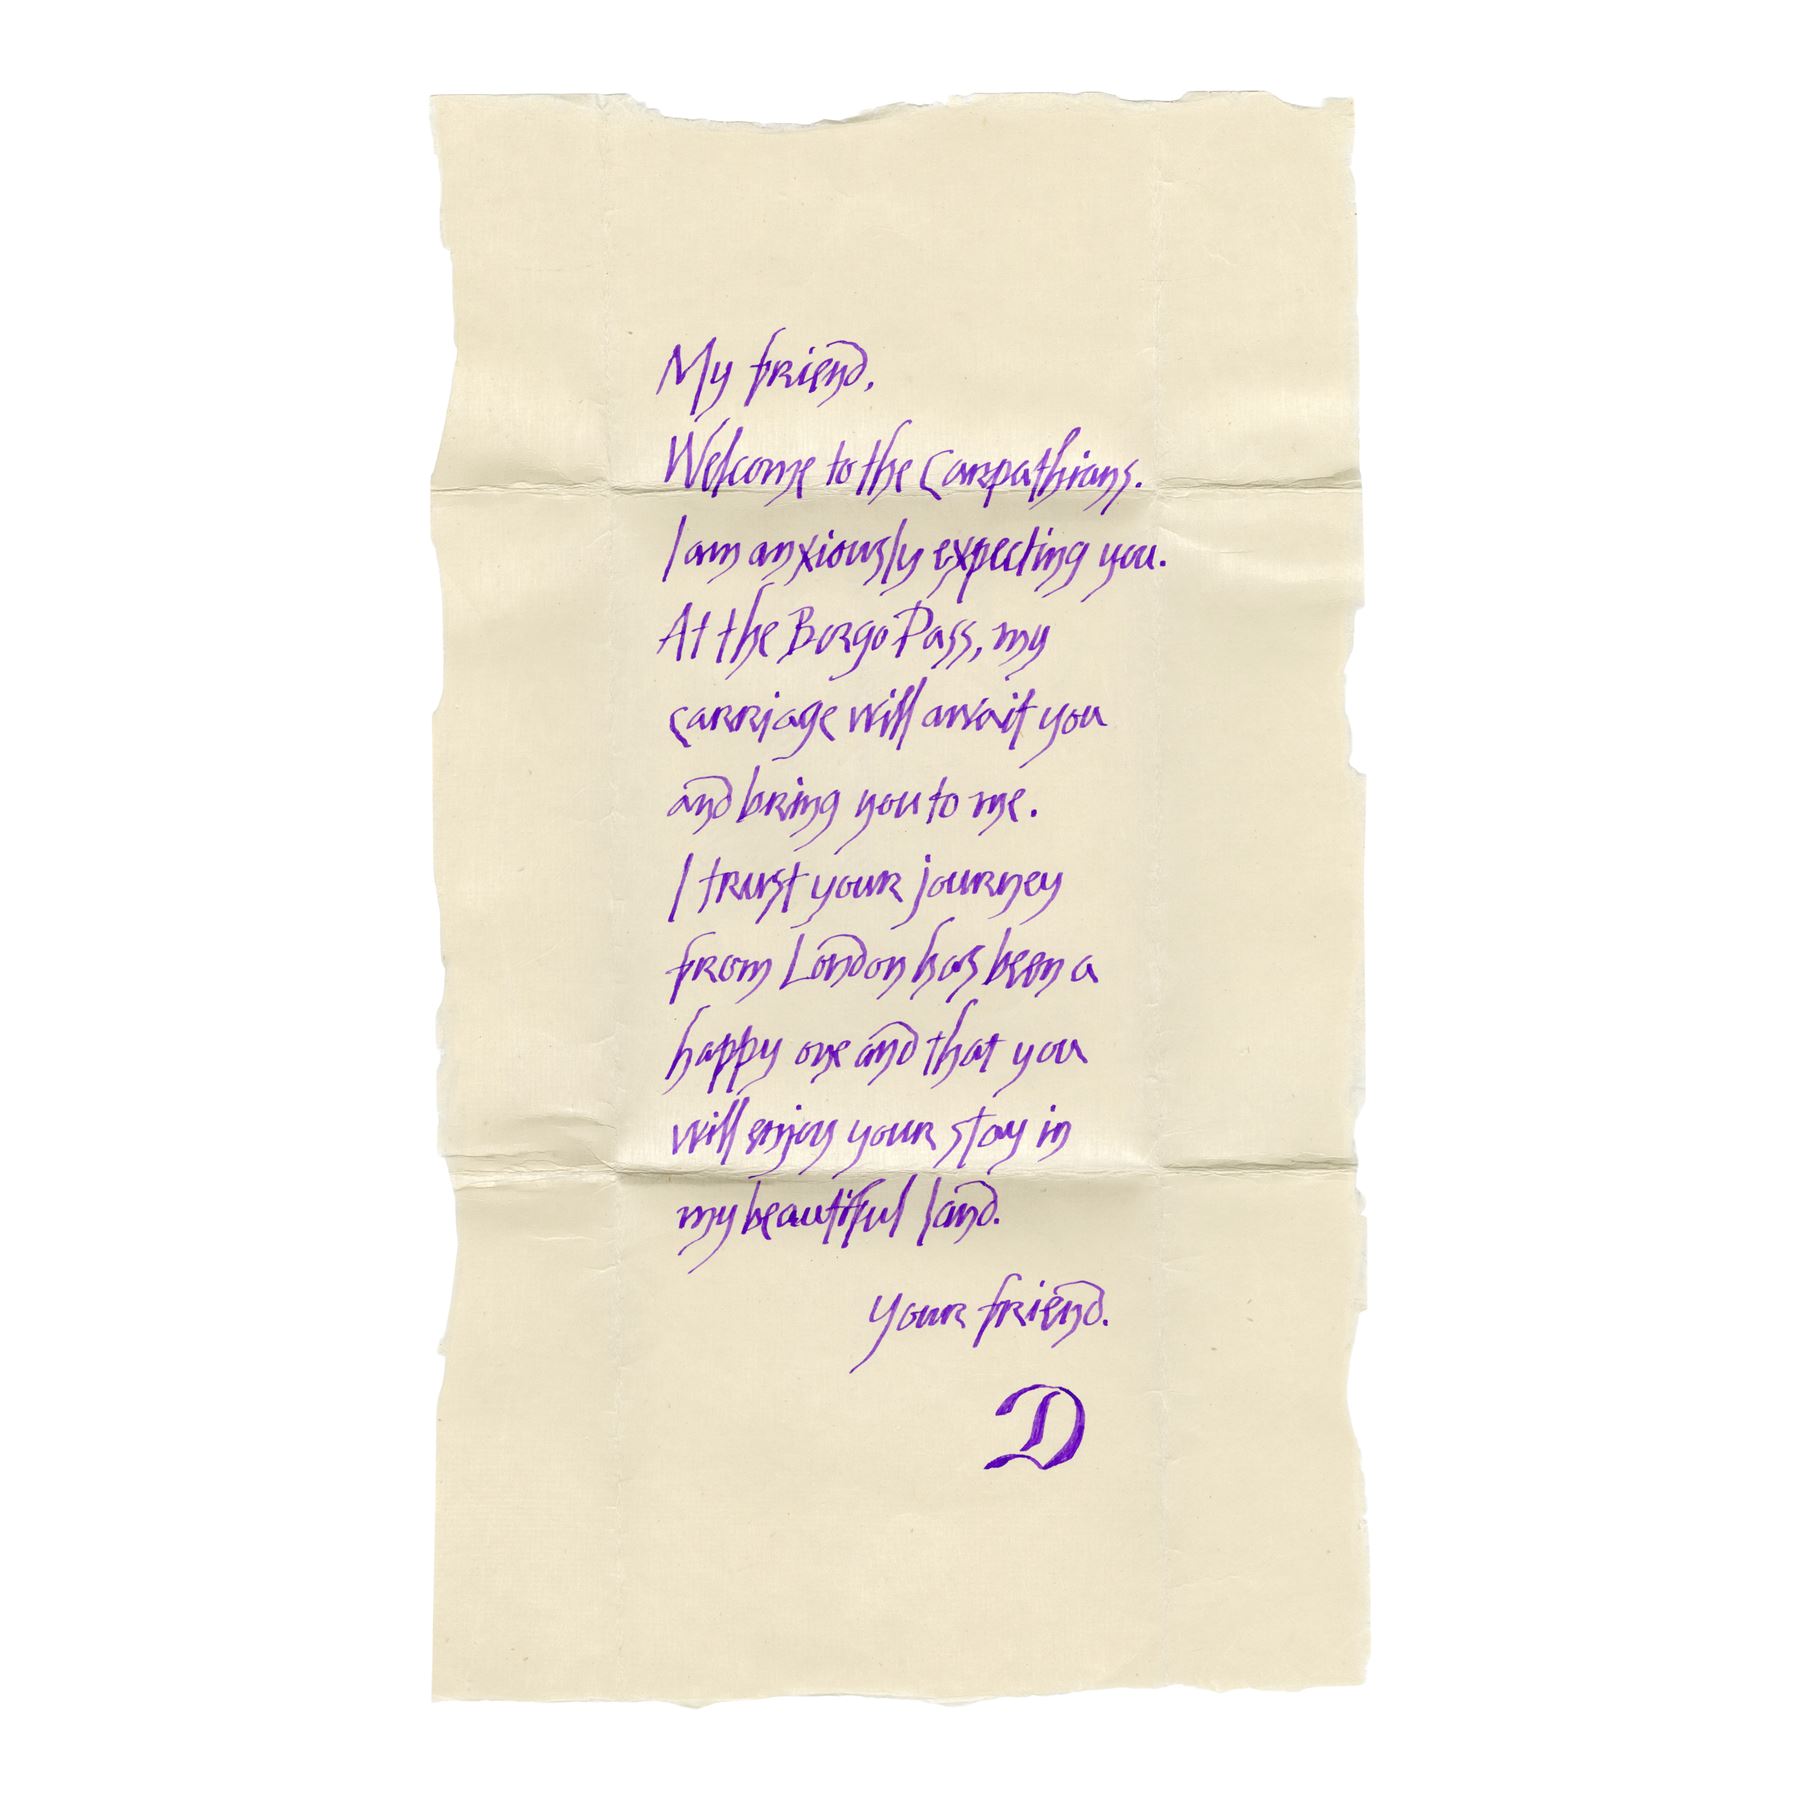 My friend,
Welcome to the Carpathians.
I am anxiously expecting you.
At the Borgo Pass, my
carriage will await you
and bring you to me.
I trust your journey
from London has been a
happy one and that you
will enjoy your stay in
my beautiful land.
Your friend.
D